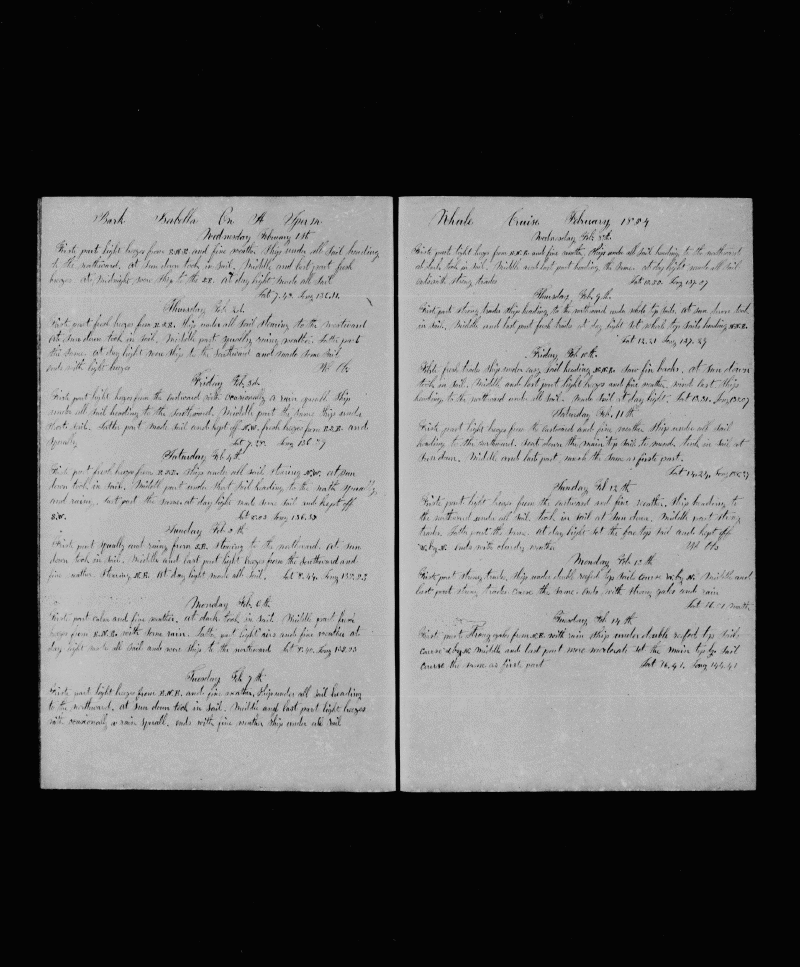 Bark Isabella On A Sperm
Wednesday February 1st
First part light breezes from E.N.E. and fine weather. Ship under all sail heading
to the northward. At sun down took in sail. Middle and last part fresh
breezes. At midnight wore ship to the S.E. At day light made all sail
Lat 7.40. Long
Thursday Feb. 2d.
First part fresh breezes from E.S.E. Ship under all sail steering to the
At sun down took in sail. Middle part squally rainy weather. Latter part
the same. At day light wore ship to the southward and made some sail
ends with light breezes No Obs
Friday Feb 3d.
First part light breezes from the eastward with occasionally a rain squall Ship
under all sail heading to the southward. Middle part the same Ship under
short sail. Latter part made sail and kept off fresh breezes from E.S.E. and
squally Lat 7.20. Long
Saturday Feb 4th
First part fresh breezes from E.S.E. Ship under all sail steering at sun
down took in sail. Middle part under short sail heading to the north squally
and rainy. Last part the same at day light made some sail and kept off
Lat 8.03 Long
Sunday Feb 5th
First part squally and rainy from S.E. steering to the westward. At sun
down took in sail. Middle and last part light breezes from the southward and
fine weather. Steering At day light made all sail. Lat 8.44. Long
Monday Feb 6th
First part calm and fine weather. At dark took in sail. Middle part fresh
breezes from E.N.E. with some rain. Latter part light airs and fine weather at
day light made all sail and wore ship to the northward Lat Long
Tuesday Feb 7th
First part light breezes from E.N.E. and fine weather. Ship under all sail heading
to the northward. At sun down took in sail. Middle and last part light breezes
with occasionally a rain squall. Ends with fine weather Ship under all sail
Whale Cruise February 1854
Wednesday Feb. 8th.
First part light breezes from E.N.E. and fine weather. Ship under all sail heading to the northward
at dark took in sail. Middle and last part heading the same. At day light made all sail
strong trades Lat 10.20. Long 137.07
Thursday Feb. 9th.
First part strong trades Ship heading to the northward under whole top sails. At sun down took
in sail. Middle and last part fresh trades at day light set whole top sails heading
Lat 12.21 Long 137.29
Friday Feb 10th.
First part fresh trades Ship under easy sail heading saw fin backs. At sun down
took in sail. Middle and last part light breezes and fine weather. Ship
heading to the northward under all sail. Made sail at day light. Lat 13.31. Long
Saturday Feb. 11th
First part light breezes from the eastward and fine weather Ship under all sail
heading to the northward. Sent down the main top sail to mend, took in sail at
sun down. Middle and last part much the same as first part.
Lat 14.24. Long
Sunday Feb 12th
First part light breezes from the eastward and fine weather. Ship heading to
the northward under all sail. took in sail at sun down. Middle part strong
trades. Latter part the same. At day light set the fore top sail and kept off
ends with cloudy weather No Obs
Monday Feb 13th
First part strong trades. Ship under double reefed top sails course Middle and
last part strong trades course the same. Ends with strong gales and rain
Lat 16.01 north
Tuesday Feb 14th
First part strong gales from with rain Ship under double reefed top sails
course middle and last part more moderate set the main top sail
course the same as first part Lat 16.41. Long 144.41